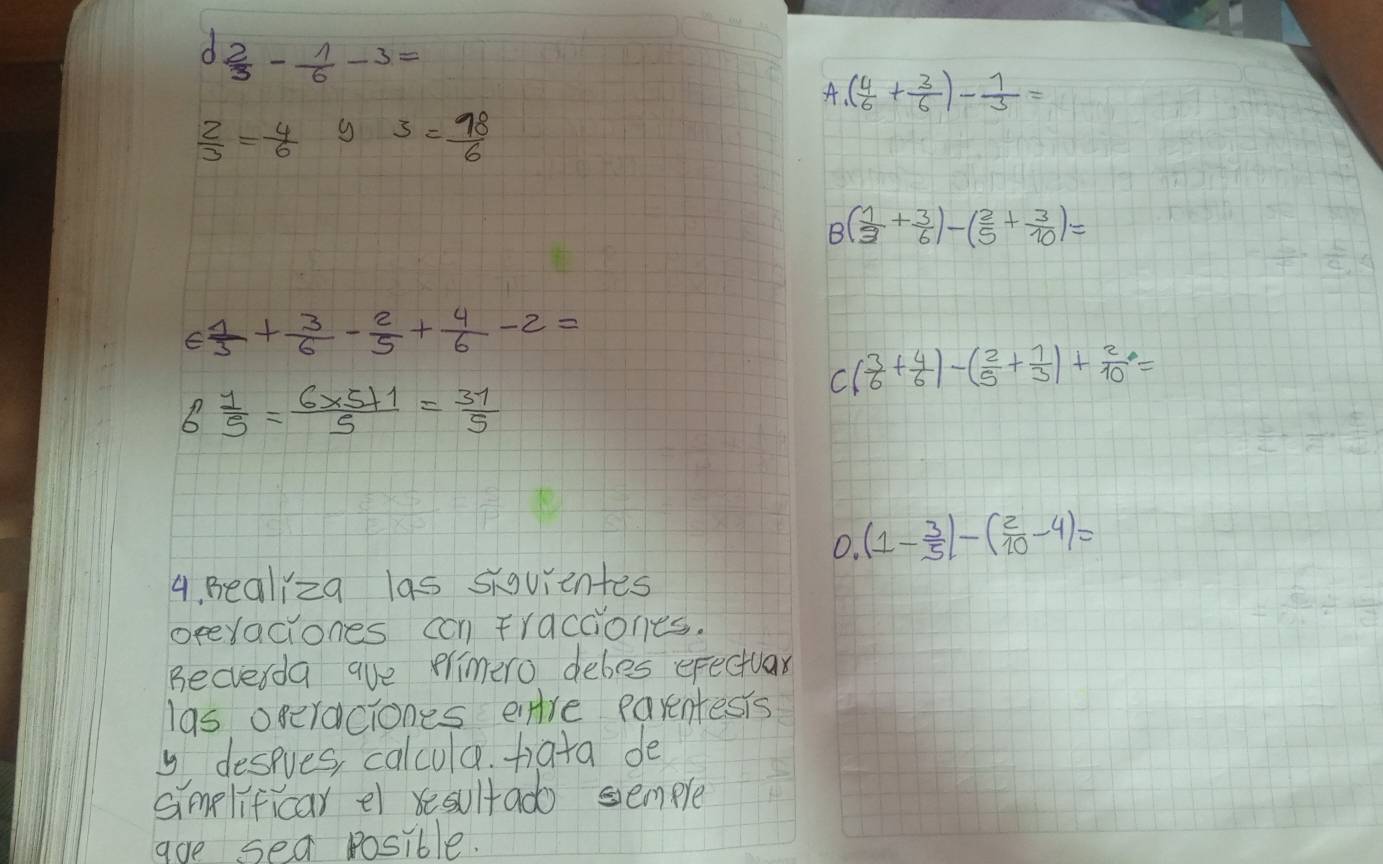 d. 2/3 - 1/6 - 3 =
2/3 = 4/6 y 3 = 18/6
e 1/3 + 3/6 - 2/5 + 4/6 - 2 =
6 1/5 = 6x5+1/5 = 31/5
4. Realiza las siguientes
operaciones con fracciones.
Recuerda que primero debes efectuar
las operaciones entre parentesis
y despues, calcula. trata de
simplificar el resultado siempre
que sea posible.
A. (4/6 + 3/6) - 1/3 =
B (1/3 + 3/6) - (2/5 + 3/10) =
C. (3/6 + 4/6) - (2/5 + 1/3) + 2/10 =
D. (1 - 3/5) - (2/10 - 4) =